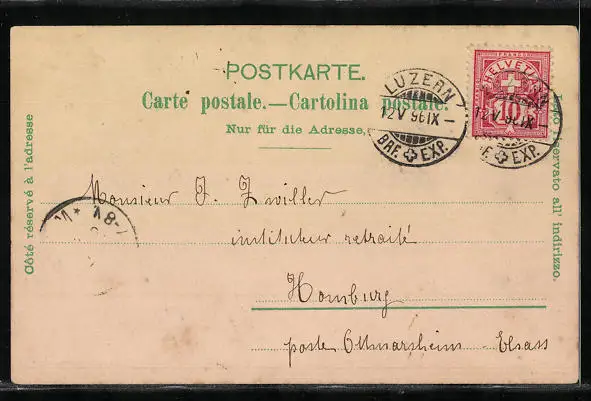 POSTKARTE.
Carte postale.—Cartolina postale.
Nur für die Adresse.
Côté réservé à l'adresse
Lato riservato all' indirizzo.
FRANCO
HELVETIA
10
LUZERN
12 V 96 IX –
BRF. EXP.
12 V 96 IX
EXP.
Monsieur J. Zwiller
instituteur retraité
Homburg
poste Ottmarsheim - Elsass
8-